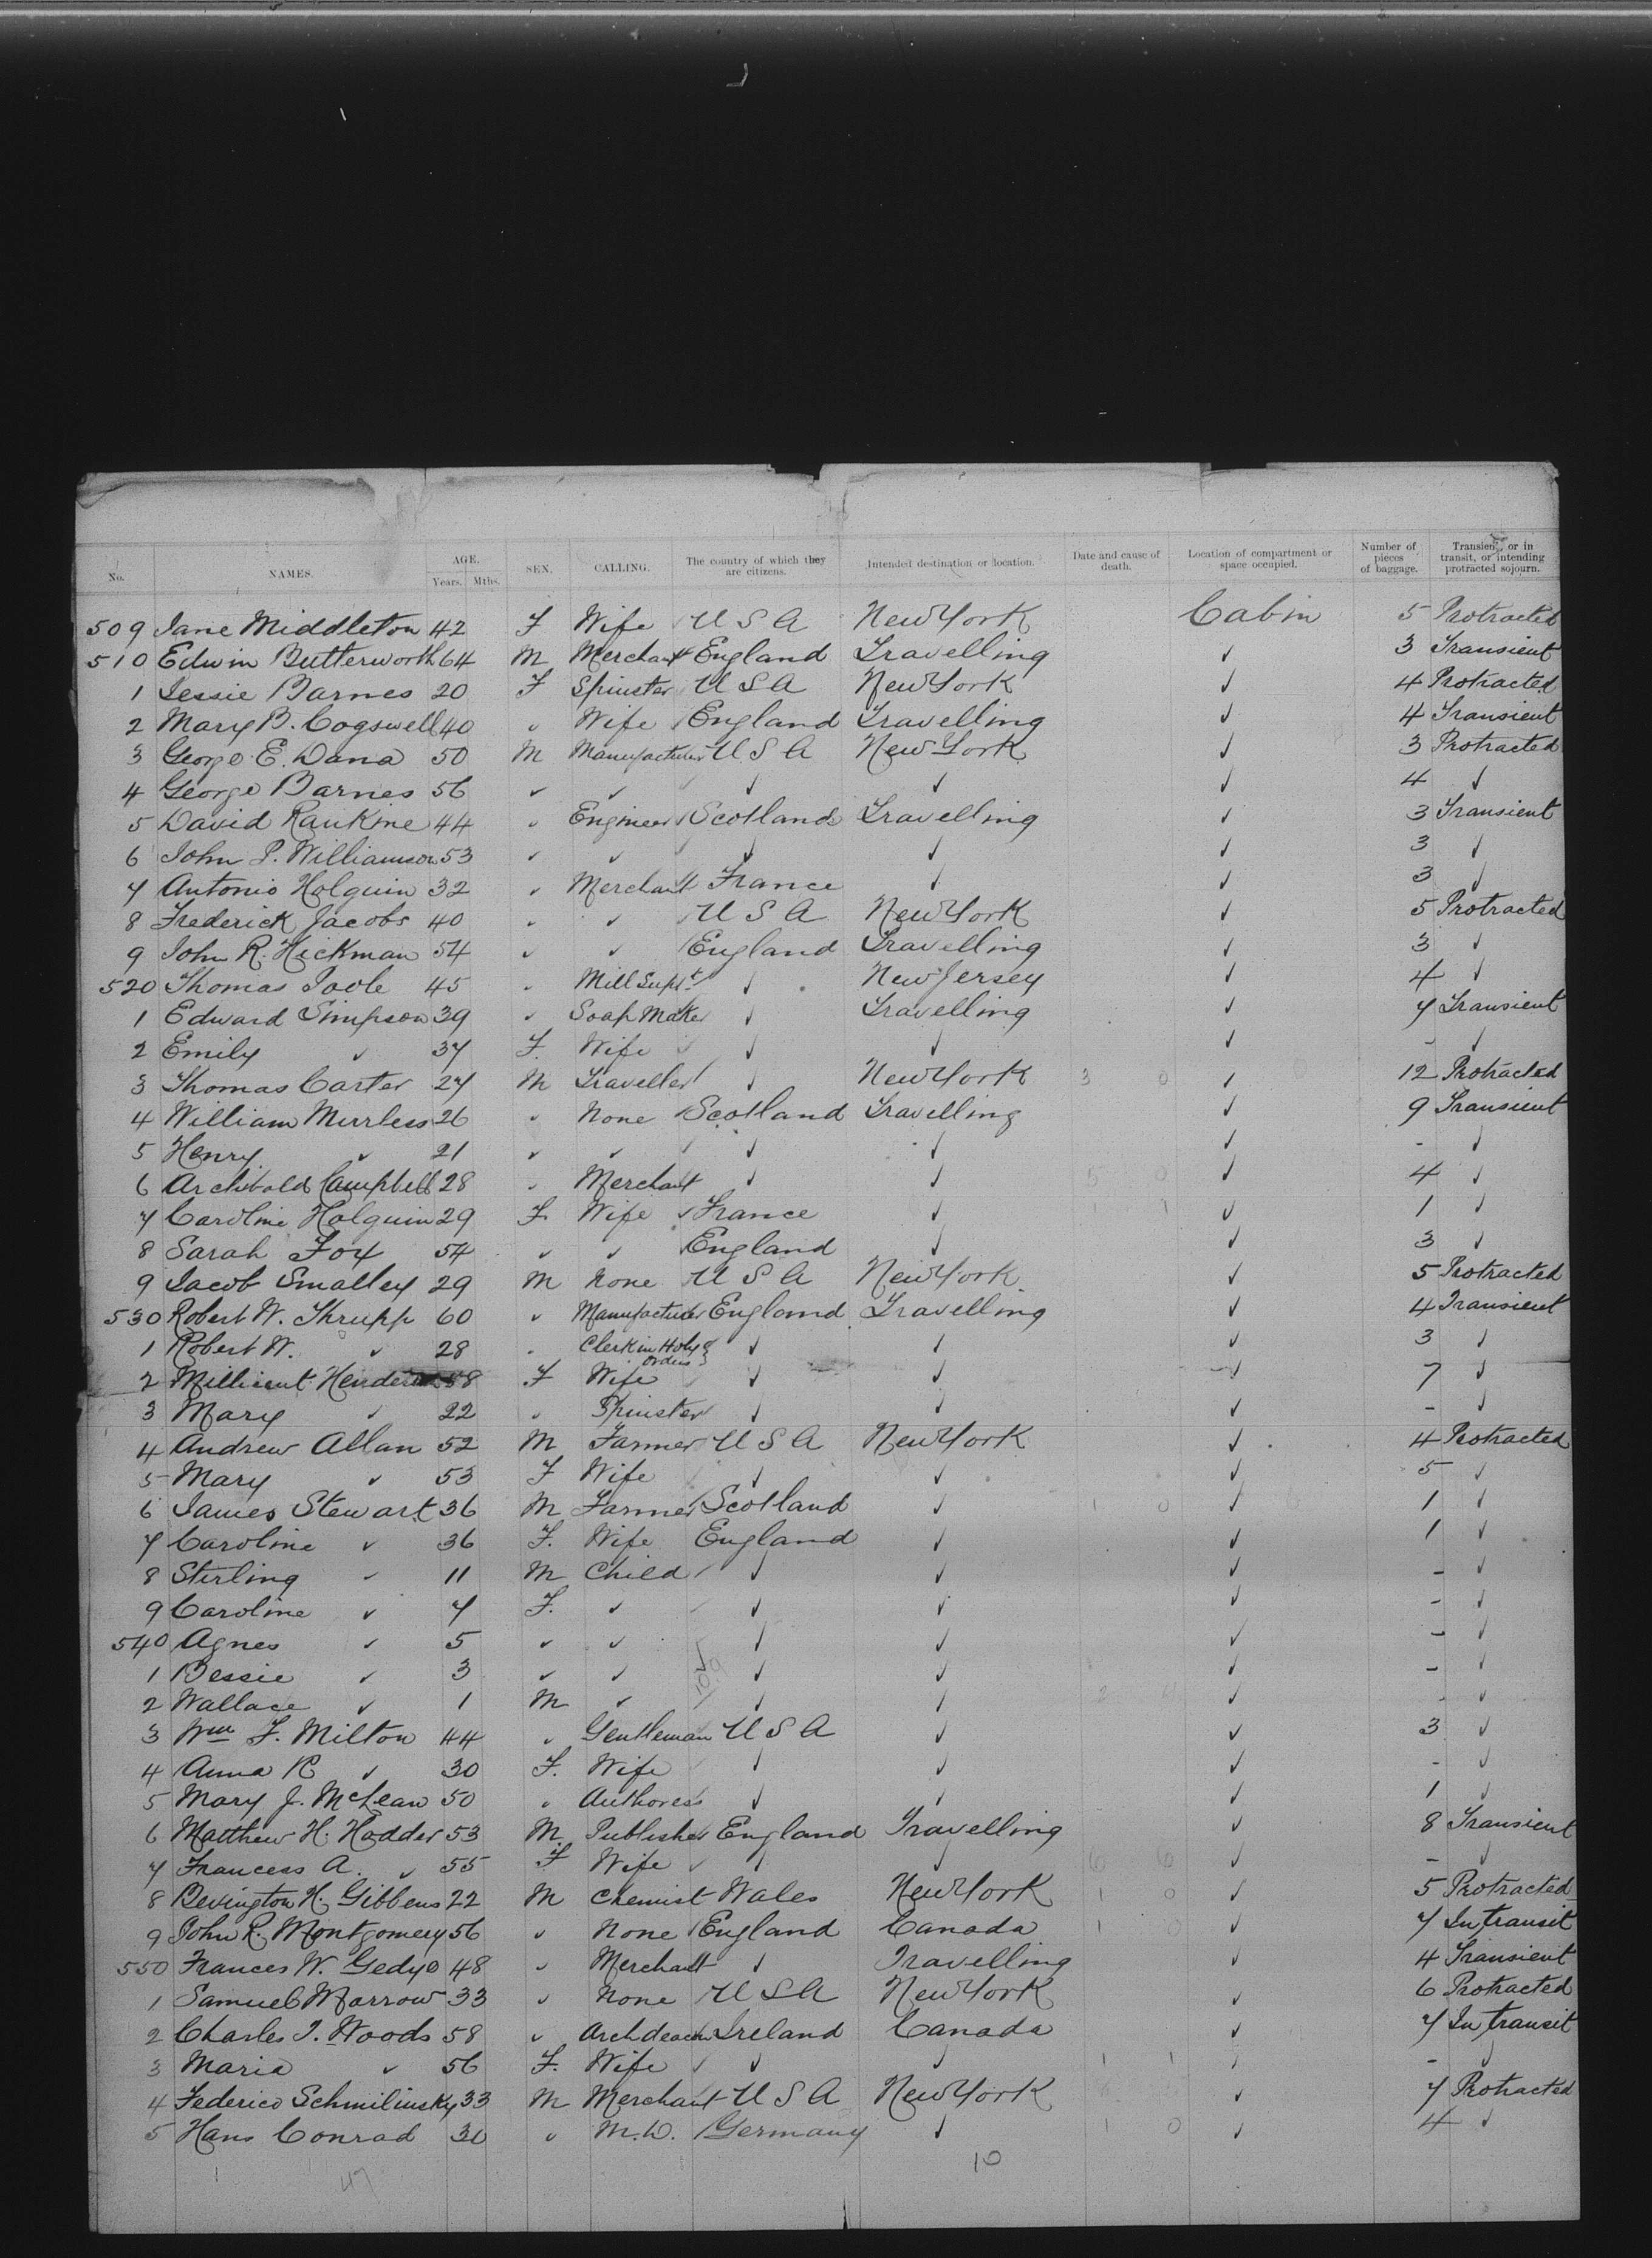 No. NAMES. AGE. Years. Mths. SEX. CALLING. The country of which they are citizens. Intended destination or location. Date and cause of death. Location of compartment or space occupied. Number of pieces of baggage. Transient, or in transit, or intending protracted sojourn.
509 Jane Middleton 42 F Wife U S A New York Cabin 5 Protracted
510 Edwin Butterworth 64 M Merchant England Travelling ✓ 3 Transient
1 Jessie Barnes 20 F Spinster U S A New York ✓ 4 Protracted
2 Mary B. Cogswell 40 ✓ Wife England Travelling ✓ 4 Transient
3 George E. Dana 50 M Manufacturer U S A New York ✓ 3 Protracted
4 George Barnes 56 ✓ ✓ ✓ ✓ ✓ 4 ✓
5 David Rankine 44 ✓ Engineer Scotland Travelling ✓ 3 Transient
6 John P. Williamson 53 ✓ ✓ ✓ ✓ ✓ 3 ✓
7 Antonio Holguin 32 ✓ Merchant France ✓ ✓ 3 ✓
8 Frederick Jacobs 40 ✓ ✓ U S A New York ✓ 5 Protracted
9 John R. Hickman 54 ✓ ✓ England Travelling ✓ 3 ✓
520 Thomas Toole 45 ✓ Mill Supt ✓ New Jersey ✓ 4 ✓
1 Edward Simpson 39 ✓ Soap Maker ✓ Travelling ✓ 7 Transient
2 Emily ✓ 37 F. Wife ✓ ✓ ✓ - ✓
3 Thomas Carter 27 M Traveller ✓ New York 3 0 ✓ 12 Protracted
4 William Mirrless 26 ✓ None Scotland Travelling ✓ 9 Transient
5 Henry ✓ 21 ✓ ✓ ✓ ✓ ✓ - ✓
6 Archibald Campbell 28 ✓ Merchant ✓ ✓ 5 0 ✓ 4 ✓
7 Caroline Holguin 29 F. Wife France ✓ 1 ✓ 1 ✓
8 Sarah Fox 54 ✓ ✓ England ✓ ✓ 3 ✓
9 Jacob Smalley 29 M None U S A New York ✓ 5 Protracted
530 Robert W. Thrupp 60 ✓ Manufacturer England Travelling ✓ 4 Transient
1 Robert W. ✓ 28 ✓ Clerk in Holy Orders ✓ ✓ ✓ 3 ✓
2 Millicent Henderson 58 F Wife ✓ ✓ ✓ 7 ✓
3 Mary ✓ 22 ✓ Spinster ✓ ✓ ✓ - ✓
4 Andrew Allan 52 M Farmer U S A New York ✓ 4 Protracted
5 Mary ✓ 53 F Wife ✓ ✓ ✓ 5 ✓
6 James Stewart 36 M Farmer Scotland ✓ 1 0 ✓ 1 ✓
7 Caroline ✓ 36 F. Wife England ✓ ✓ 1 ✓
8 Sterling ✓ 11 M Child ✓ ✓ ✓ - ✓
9 Caroline ✓ 7 F. ✓ ✓ ✓ ✓ - ✓
540 Agnes ✓ 5 ✓ ✓ ✓ ✓ ✓ - ✓
1 Bessie ✓ 3 ✓ ✓ ✓ ✓ ✓ - ✓
2 Wallace ✓ 1 M ✓ ✓ ✓ 2 ✓ - ✓
3 Wm F. Milton 44 ✓ Gentleman U S A ✓ ✓ 3 ✓
4 Anna R ✓ 30 F. Wife ✓ ✓ ✓ - ✓
5 Mary J. McLean 50 ✓ Authoress ✓ ✓ ✓ 1 ✓
6 Matthew H. Hodder 53 M. Publisher England Travelling ✓ 8 Transient
7 Francess A. ✓ 55 F Wife ✓ ✓ 6 6 ✓ - ✓
8 Bevington H. Gibbens 22 M Chemist Wales New York 1 0 ✓ 5 Protracted
9 John R. Montgomery 56 ✓ None England Canada 1 0 ✓ 7 In transit
550 Frances W. Gedye 48 ✓ Merchant ✓ Travelling ✓ 4 Transient
1 Samuel Morrow 33 ✓ None U S A New York ✓ 6 Protracted
2 Charles T. Woods 58 ✓ Archdeacon Ireland Canada ✓ 7 In transit
3 Maria ✓ 56 F. Wife ✓ ✓ 1 1 ✓ - ✓
4 Federico Schmilinsky 33 M Merchant U S A New York ✓ 7 Protracted
5 Hans Conrad 30 ✓ M.D. Germany ✓ 1 0 ✓ 4 ✓
10